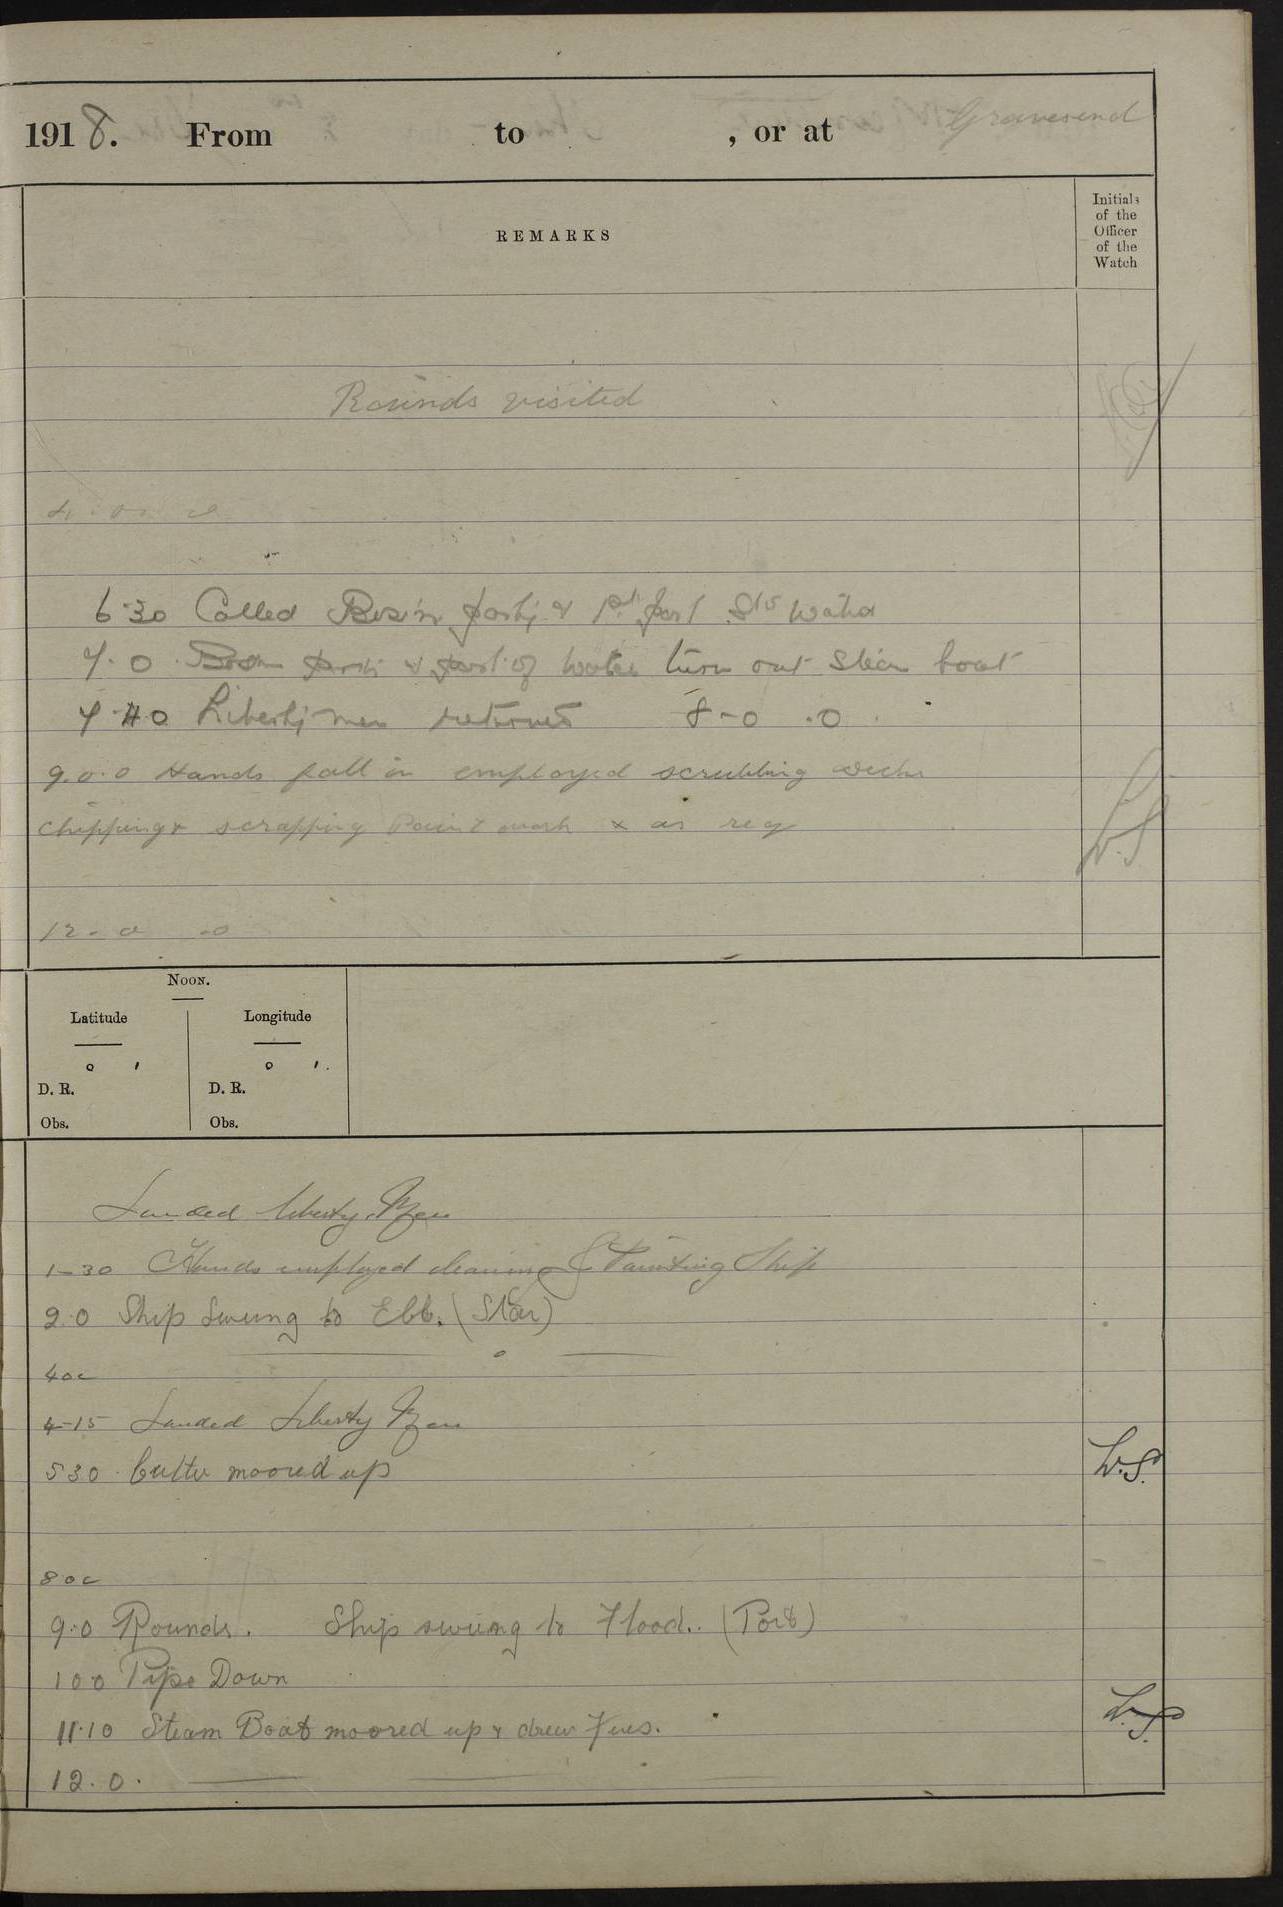 1918. From to , or at Gravesend
REMARKS
Initials
of the
Officer
of the
Watch
Rounds visited
6-30 Called party & pt part watch
7.0 turn out boat
7-40 Liberty men returned 8-0 .0
9.0.0 Hands fall in employed scrubbing
chipping & scrapping Paint work & as req
12-0 -0
L.S.
NOON.
Latitude Longitude
° ' ° '
D. R. D. R.
Obs. Obs.
Landed liberty Men
1-30 Hands employed cleaning & Painting Ship
2.0 Ship Swung to Ebb. (Star)
4 oc
4-15 Landed Liberty Men
5 30 Cutter moored up
L.S.
8 oc
9.0 Rounds. Ship swung to Flood. (Port)
10 0 Pipe Down
11.10 Steam Boat moored up & drew Fires.
L.S.
12.0.